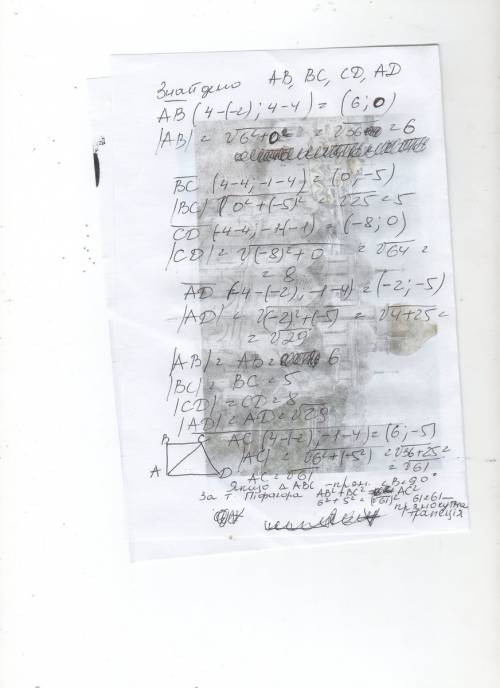 Знайдено AB, BC, CD, AD
AB (4-(-2); 4-4) = (6; 0)
|AB| = √6²+0² = √36 = 6
BC (4-4, -1-4) = (0, -5)
|BC| √0²+(-5)² = √25 = 5
CD (-4-4, -1-(-1)) = (-8; 0)
|CD| = √(-8)²+0 = √64 =
= 8
AD (-4-(-2), -1-4) = (-2; -5)
|AD| = √(-2)²+(-5) = √4+25 =
= √29
|AB| = AB = 6
|BC| = BC = 5
|CD| = CD = 8
|AD| = AD = √29
B C AC (4-(-2), -1-4) = (6; -5)
A D |AC| = √6²+(-5²) = √36+25 =
AC = √61 = √61
Якщо Δ ABC - прям. ∠B = 90°
За т Піфагора AB²+BC² = AC²
6²+5² = (√61)² 61=61 –
прямокутна
трапеція